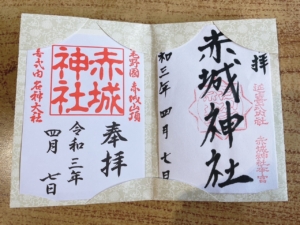 拝
赤城神社
令和三年四月七日
赤城神社
上野國 赤城山頂
奉拝
令和三年
四月七日
名神大社